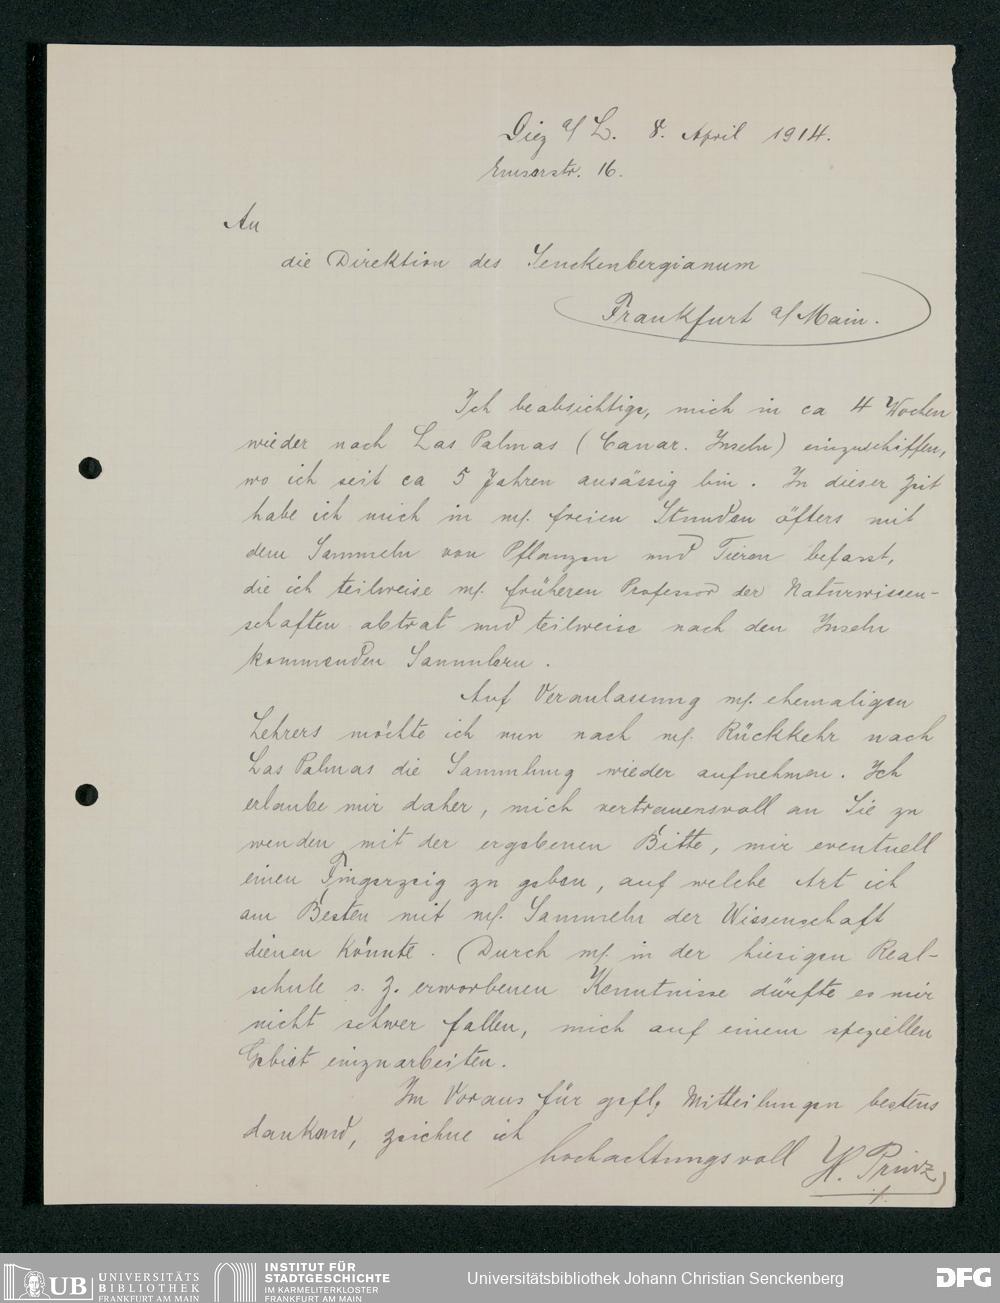 Diez a/L. 8. April 1914.
Emserstr. 16.
An
die Direktion des Senckenbergianum
Frankfurt a/Main.
Ich beabsichtige, mich in ca 4 Wochen
wieder nach Las Palmas (Canar. Inseln) einzuschiffen,
wo ich seit ca 5 Jahren ansässig bin. In dieser Zeit
habe ich mich in m/. freien Stunden öfters mit
dem Sammeln von Pflanzen und Tieren befasst,
die ich teilweise m/. früheren Professor der Naturwissen-
schaften abtrat und teilweise nach den Inseln
kommenden Sammlern.
Auf Veranlassung m/. ehemaligen
Lehrers möchte ich nun nach m/. Rückkehr nach
Las Palmas die Sammlung wieder aufnehmen. Ich
erlaube mir daher, mich vertrauensvoll an Sie zu
wenden mit der ergebenen Bitte, mir eventuell
einen Fingerzeig zu geben, auf welche Art ich
am Besten mit m/. Sammeln der Wissenschaft
dienen könnte. Durch m/. in der hiesigen Real-
schule s. Z. erworbenen Kenntnisse dürfte es mir
nicht schwer fallen, mich auf einem speziellen
Gebiet einzuarbeiten.
Im Voraus für gefl. Mitteilungen bestens
dankend, zeichne ich
hochachtungsvoll H. Prinz
UB UNIVERSITÄTS
BIBLIOTHEK
FRANKFURT AM MAIN
INSTITUT FÜR
STADTGESCHICHTE
IM KARMELITERKLOSTER
FRANKFURT AM MAIN
Universitätsbibliothek Johann Christian Senckenberg
DFG